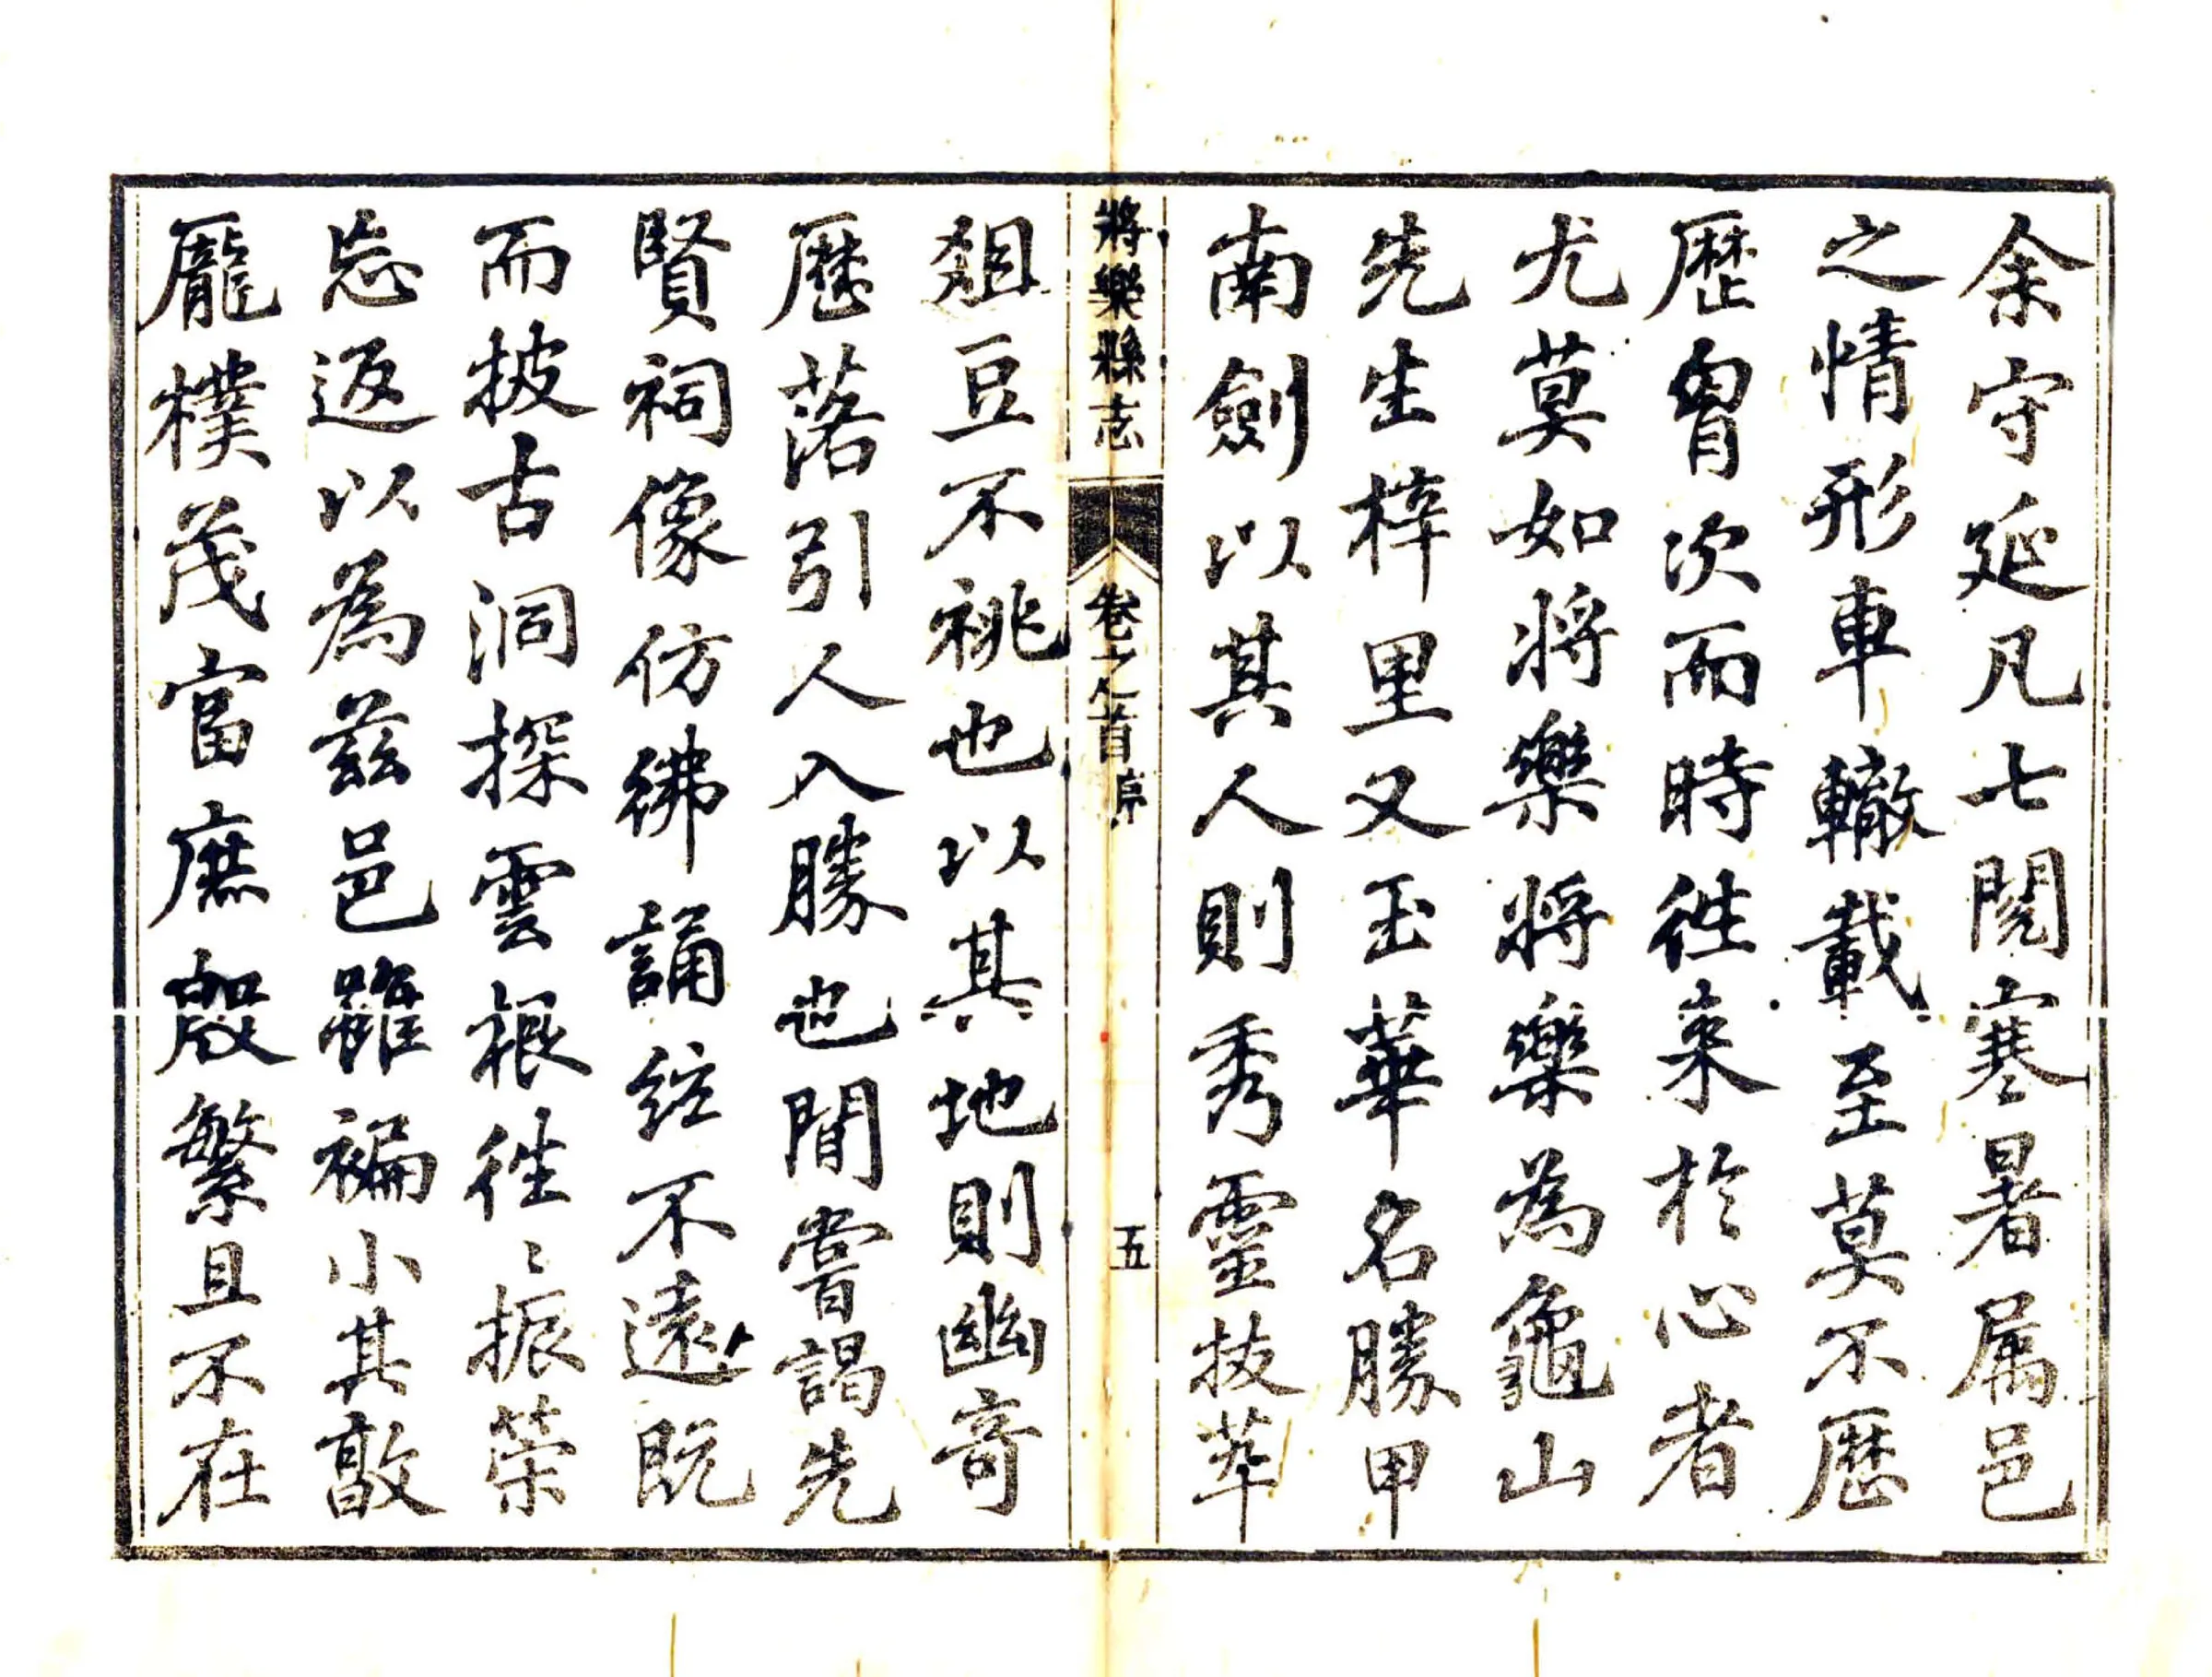 余守延凡七閱寒暑属邑
之情形車轍載至莫不歷
歷胷次而時徃来於心者
尤莫如將樂將樂為龜山
先生梓里又玉華名勝甲
南劍以其人則秀靈拔萃
將樂縣志 卷之首 序 五
爼豆不祧也以其地則幽奇
歷落引人入勝也間嘗謁先
賢祠像仿彿誦絃不遠既
而披古洞探雲根徃〻振榮
忘返以為茲邑雖褊小其敦
龎樸茂富庶殷繁且不在